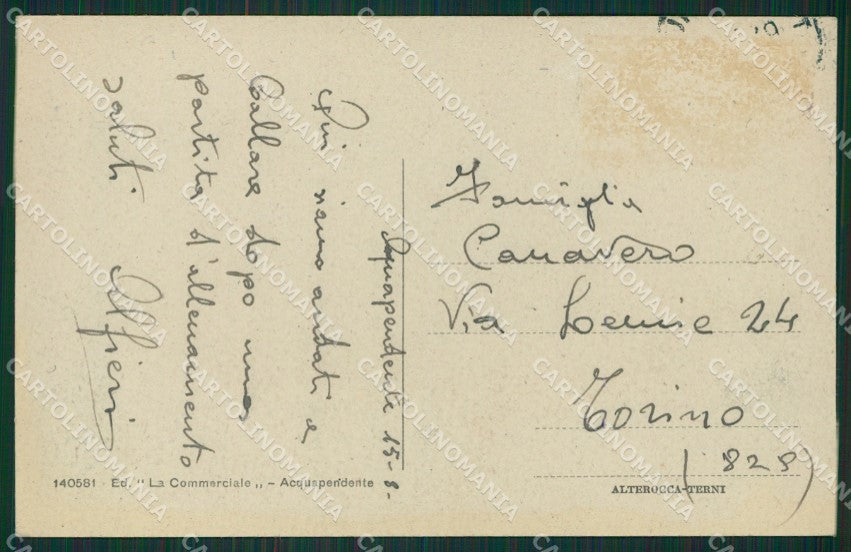 Acquapendente 15-8-
Qui siamo andati a
ballare dopo una
partita d'allenamento
saluti
Alfieri
Famiglia
Canavero
Via 24
Torino
(829)
140581 - Ed. "La Commerciale„ - Acquapendente
ALTEROCCA-TERNI
CARTOLINOMANIA